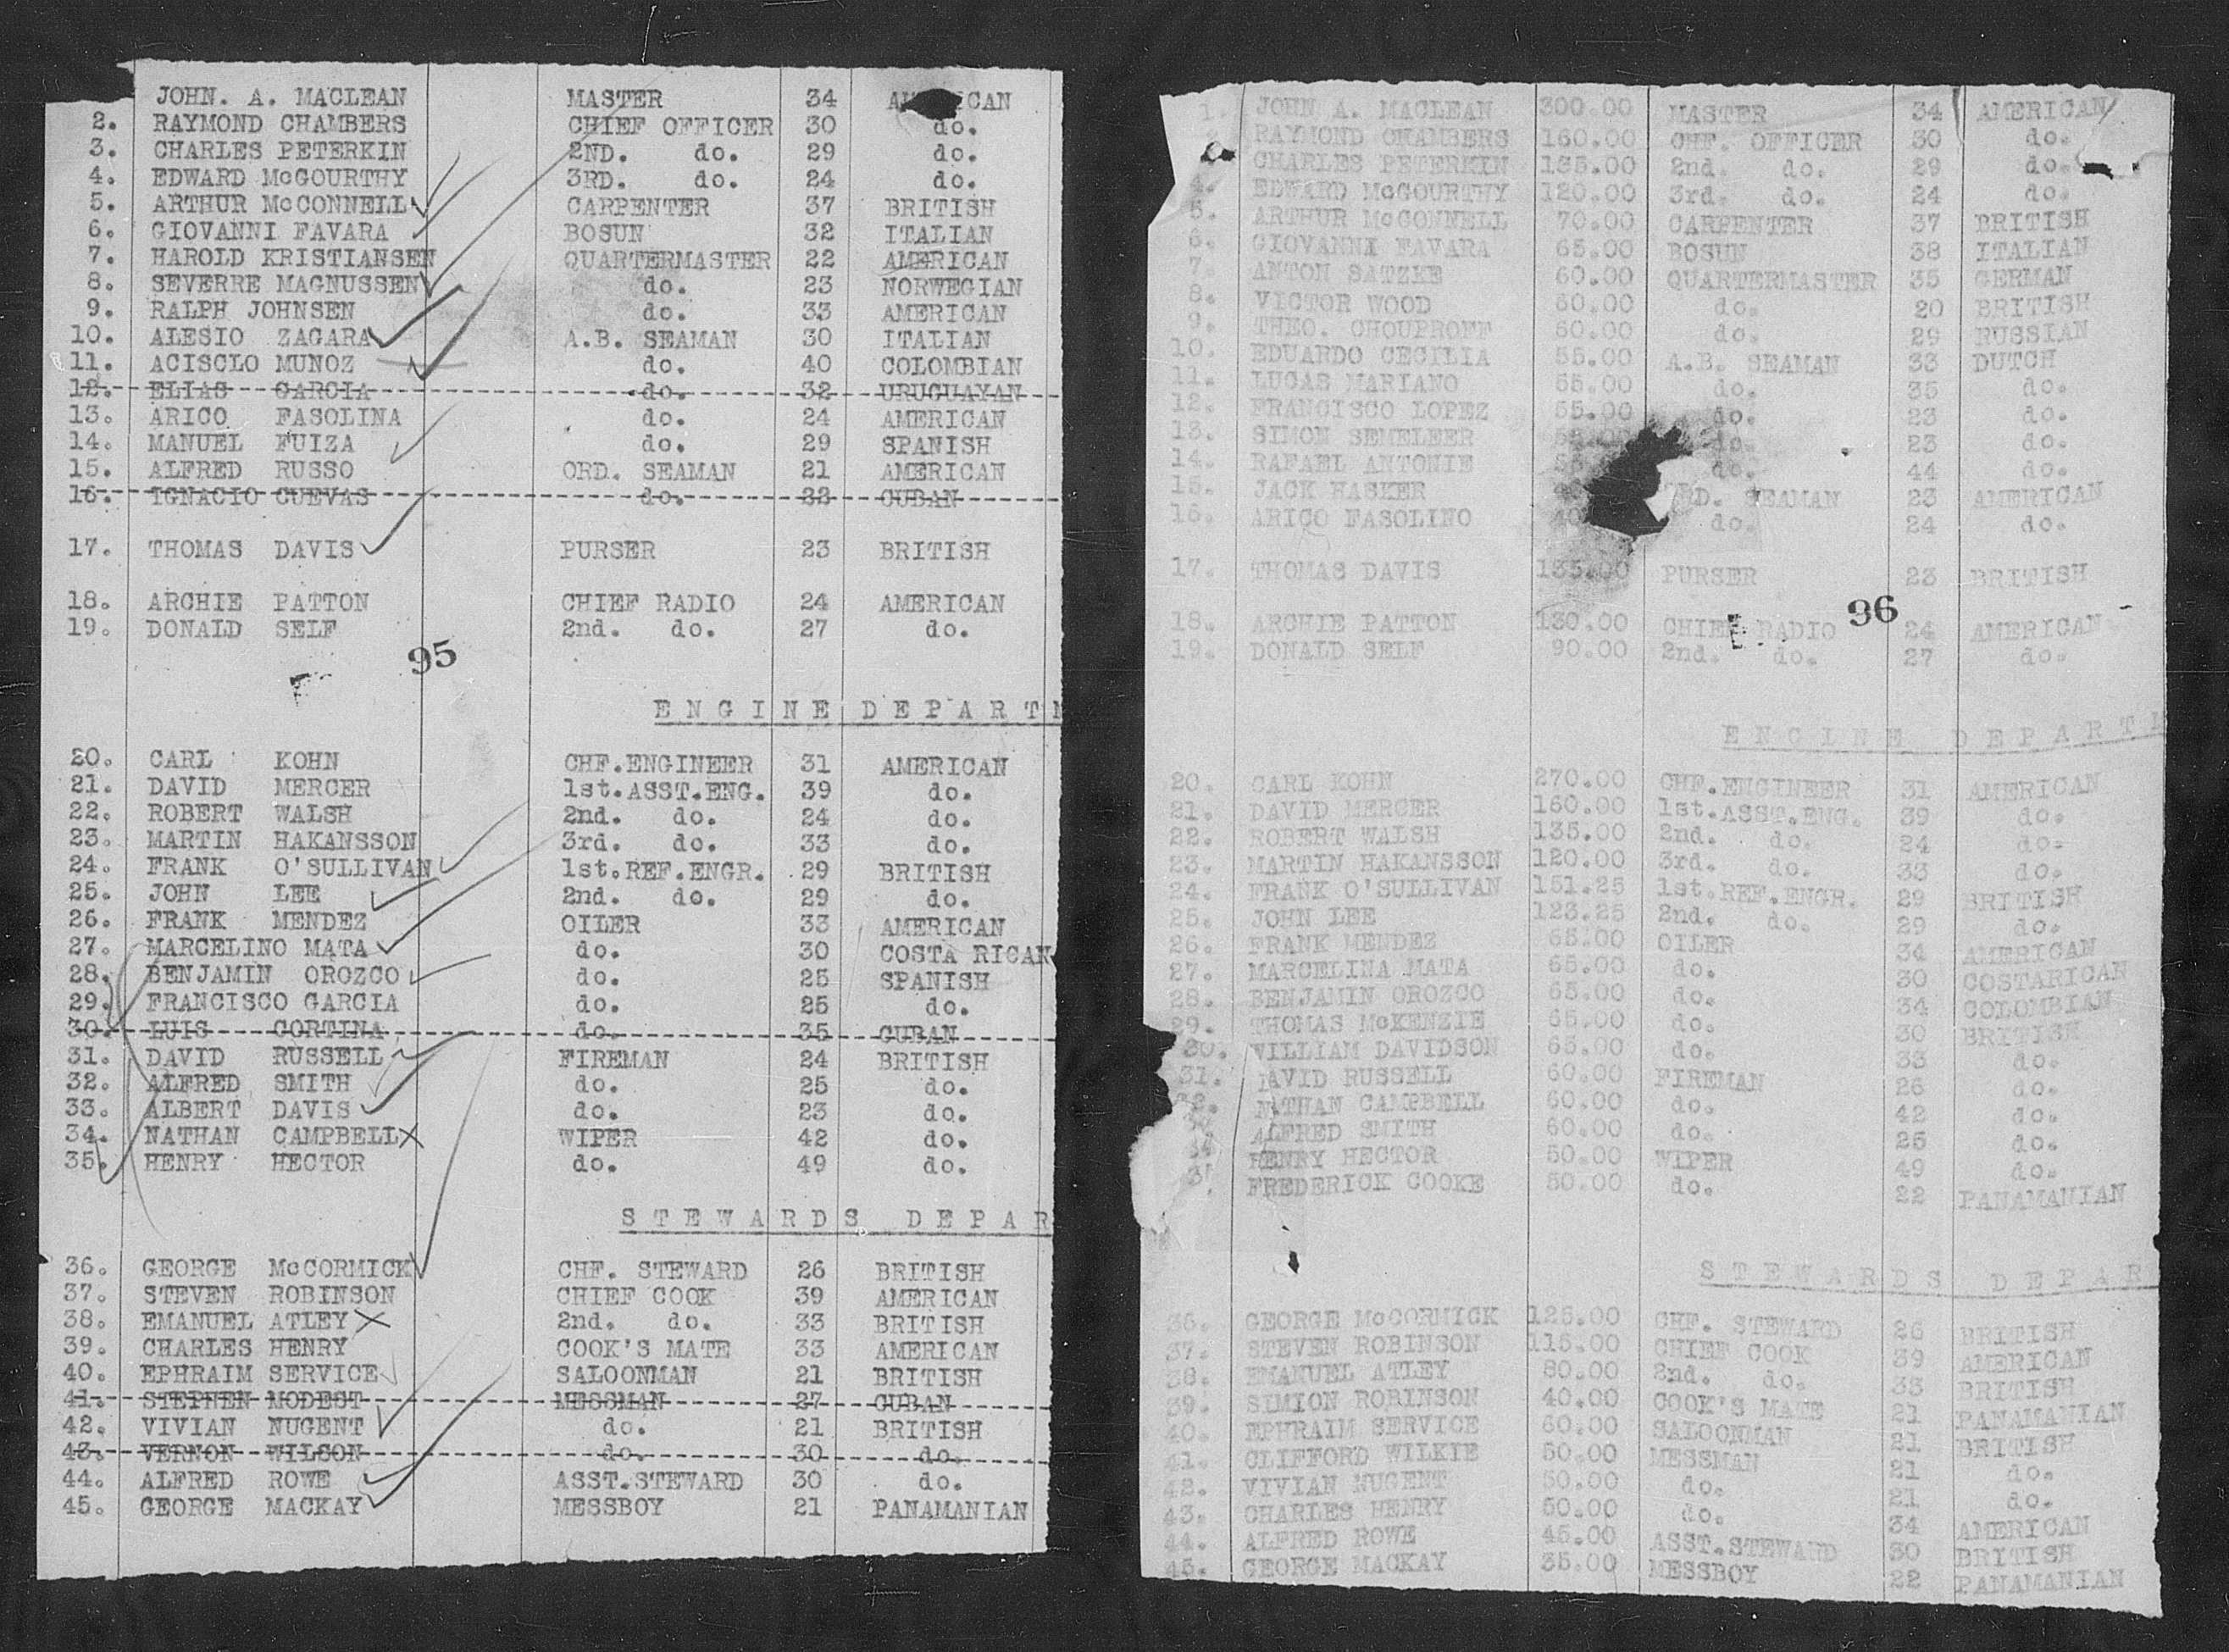 JOHN. A. MACLEAN MASTER 34
2. RAYMOND CHAMBERS CHIEF OFFICER 30 do.
3. CHARLES PETERKIN 2ND. do. 29 do.
4. EDWARD McGOURTHY 3RD. do. 24 do.
5. ARTHUR McCONNELL CARPENTER 37 BRITISH
6. GIOVANNI FAVARA BOSUN 32 ITALIAN
7. HAROLD KRISTIANSEN QUARTERMASTER 22 AMERICAN
8. SEVERRE MAGNUSSEN do. 23 NORWEGIAN
9. RALPH JOHNSEN do. 33 AMERICAN
10. ALESIO ZAGARA A.B. SEAMAN 30 ITALIAN
11. ACISCLO MUNOZ do. 40 COLOMBIAN
12. ELIAS GARCIA do. 32 URUGUAYAN
13. ARICO FASOLINA do. 24 AMERICAN
14. MANUEL FUIZA do. 29 SPANISH
15. ALFRED RUSSO ORD. SEAMAN 21 AMERICAN
16. IGNACIO CUEVAS do. 22 CUBAN
17. THOMAS DAVIS PURSER 23 BRITISH
18. ARCHIE PATTON CHIEF RADIO 24 AMERICAN
19. DONALD SELF 2nd. do. 27 do.
95
ENGINE DEPARTM
20. CARL KOHN CHF.ENGINEER 31 AMERICAN
21. DAVID MERCER 1st.ASST.ENG. 39 do.
22. ROBERT WALSH 2nd. do. 24 do.
23. MARTIN HAKANSSON 3rd. do. 33 do.
24. FRANK O'SULLIVAN 1st.REF.ENGR. 29 BRITISH
25. JOHN LEE 2nd. do. 29 do.
26. FRANK MENDEZ OILER 33 AMERICAN
27. MARCELINO MATA do. 30 COSTA RICAN
28. BENJAMIN OROZCO do. 25 SPANISH
29. FRANCISCO GARCIA do. 25 do.
30. LUIS CORTINA do. 35 CUBAN
31. DAVID RUSSELL FIREMAN 24 BRITISH
32. ALFRED SMITH do. 25 do.
33. ALBERT DAVIS do. 23 do.
34. NATHAN CAMPBELL WIPER 42 do.
35. HENRY HECTOR do. 49 do.
STEWARDS DEPAR
36. GEORGE McCORMICK CHF. STEWARD 26 BRITISH
37. STEVEN ROBINSON CHIEF COOK 39 AMERICAN
38. EMANUEL ATLEY 2nd. do. 33 BRITISH
39. CHARLES HENRY COOK'S MATE 33 AMERICAN
40. EPHRAIM SERVICE SALOONMAN 21 BRITISH
41. STEPHEN MODEST MESSMAN 27 CUBAN
42. VIVIAN NUGENT do. 21 BRITISH
43. VERNON WILSON do. 30 do.
44. ALFRED ROWE ASST.STEWARD 30 do.
45. GEORGE MACKAY MESSBOY 21 PANAMANIAN
1. JOHN A. MACLEAN 300.00 MASTER 34 AMERICAN
RAYMOND CHAMBERS 160.00 CHF. OFFICER 30 do.
CHARLES PETERKIN 2nd. do. 29 do.
4. EDWARD McGOURTHY 120.00 3rd. do. 24 do.
5. ARTHUR McCONNELL 70.00 CARPENTER 37 BRITISH
6. GIOVANNI FAVARA 65.00 BOSUN 38 ITALIAN
7. ANTON SATZKE 60.00 QUARTERMASTER 35 GERMAN
8. VICTOR WOOD 60.00 do. 20 BRITISH
9. THEO. CHOUPROFF 60.00 do. 29 RUSSIAN
10. EDUARDO CECILIA 55.00 A.B. SEAMAN 33 DUTCH
11. LUCAS MARIANO 55.00 do. 35 do.
12. FRANCISCO LOPEZ 55.00 do. 23 do.
13. SIMON SEMELEER do. 23 do.
14. RAFAEL ANTONIE do. 44 do.
15. JACK HASKER SEAMAN 23 AMERICAN
16. ARICO FASOLINO do. 24 do.
17. THOMAS DAVIS 135.00 PURSER 23 BRITISH
96
18. ARCHIE PATTON 130.00 CHIEF RADIO 24 AMERICAN
19. DONALD SELF 90.00 2nd. do. 27 do.
ENGINE DEPARTM
20. CARL KOHN 270.00 CHF.ENGINEER 31 AMERICAN
21. DAVID MERCER 160.00 1st.ASST.ENG. 39 do.
22. ROBERT WALSH 135.00 2nd. do. 24 do.
23. MARTIN HAKANSSON 120.00 3rd. do. 33 do.
24. FRANK O'SULLIVAN 151.25 1st.REF.ENGR. 29 BRITISH
25. JOHN LEE 123.25 2nd. do. 29 do.
26. FRANK MENDEZ 65.00 OILER 34 AMERICAN
27. MARCELINA MATA 65.00 do. 30 COSTARICAN
28. BENJAMIN OROZCO 65.00 do. 34 COLOMBIAN
29. THOMAS McKENZIE 65.00 do. 30 BRITISH
30. WILLIAM DAVIDSON 65.00 do. 33 do.
31. DAVID RUSSELL 60.00 FIREMAN 26 do.
NATHAN CAMPBELL 60.00 do. 42 do.
ALFRED SMITH 60.00 do. 25 do.
HENRY HECTOR 50.00 WIPER 49 do.
FREDERICK COOKE 50.00 do. 22 PANAMANIAN
STEWARDS DEPAR
36. GEORGE McCORMICK 125.00 CHF. STEWARD 26 BRITISH
37. STEVEN ROBINSON 115.00 CHIEF COOK 39 AMERICAN
38. EMANUEL ATLEY 80.00 2nd. do. 33 BRITISH
39. SIMION ROBINSON 40.00 COOK'S MATE 21 PANAMANIAN
40. EPHRAIM SERVICE 60.00 SALOONMAN 21 BRITISH
41. CLIFFORD WILKIE 50.00 MESSMAN 21 do.
42. VIVIAN NUGENT 50.00 do. 21 do.
43. CHARLES HENRY 50.00 do. 34 AMERICAN
44. ALFRED ROWE 45.00 ASST.STEWARD 30 BRITISH
45. GEORGE MACKAY 35.00 MESSBOY 22 PANAMANIAN